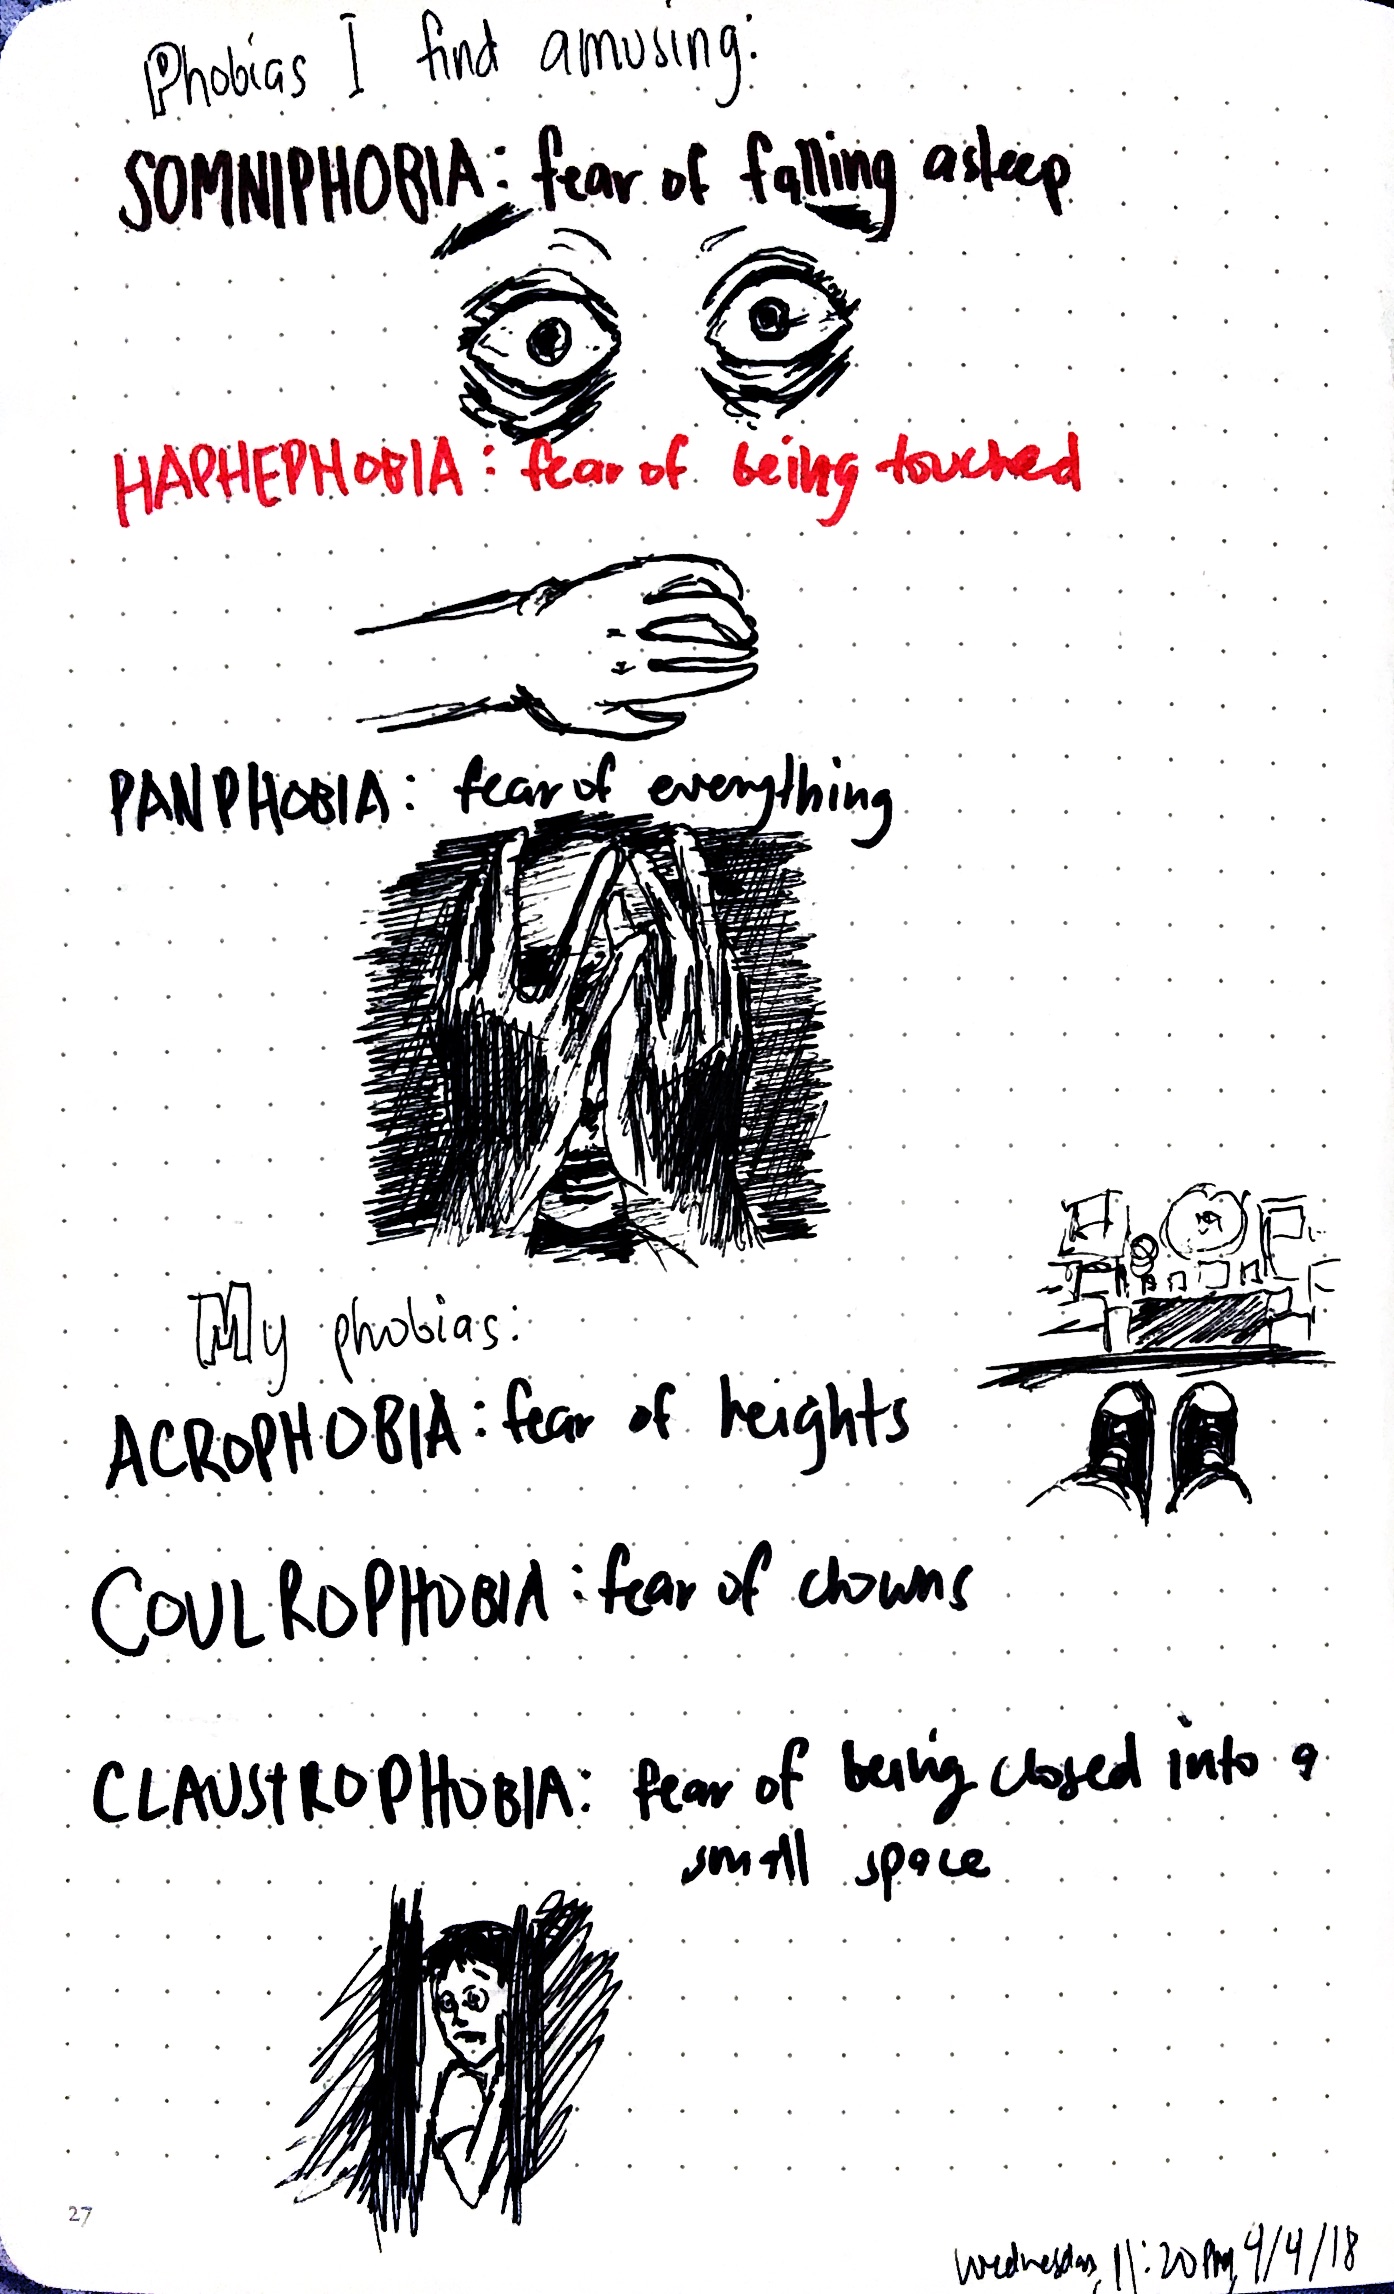 Phobias I find amusing:
SOMNIPHOBIA: fear of falling asleep
HAPHEPHOBIA: fear of being touched
PANPHOBIA: fear of everything
My phobias:
ACROPHOBIA: fear of heights
COULROPHOBIA: fear of clowns
CLAUSTROPHOBIA: fear of being closed into a
small space
27
Wednesday, 11:20PM, 4/4/18